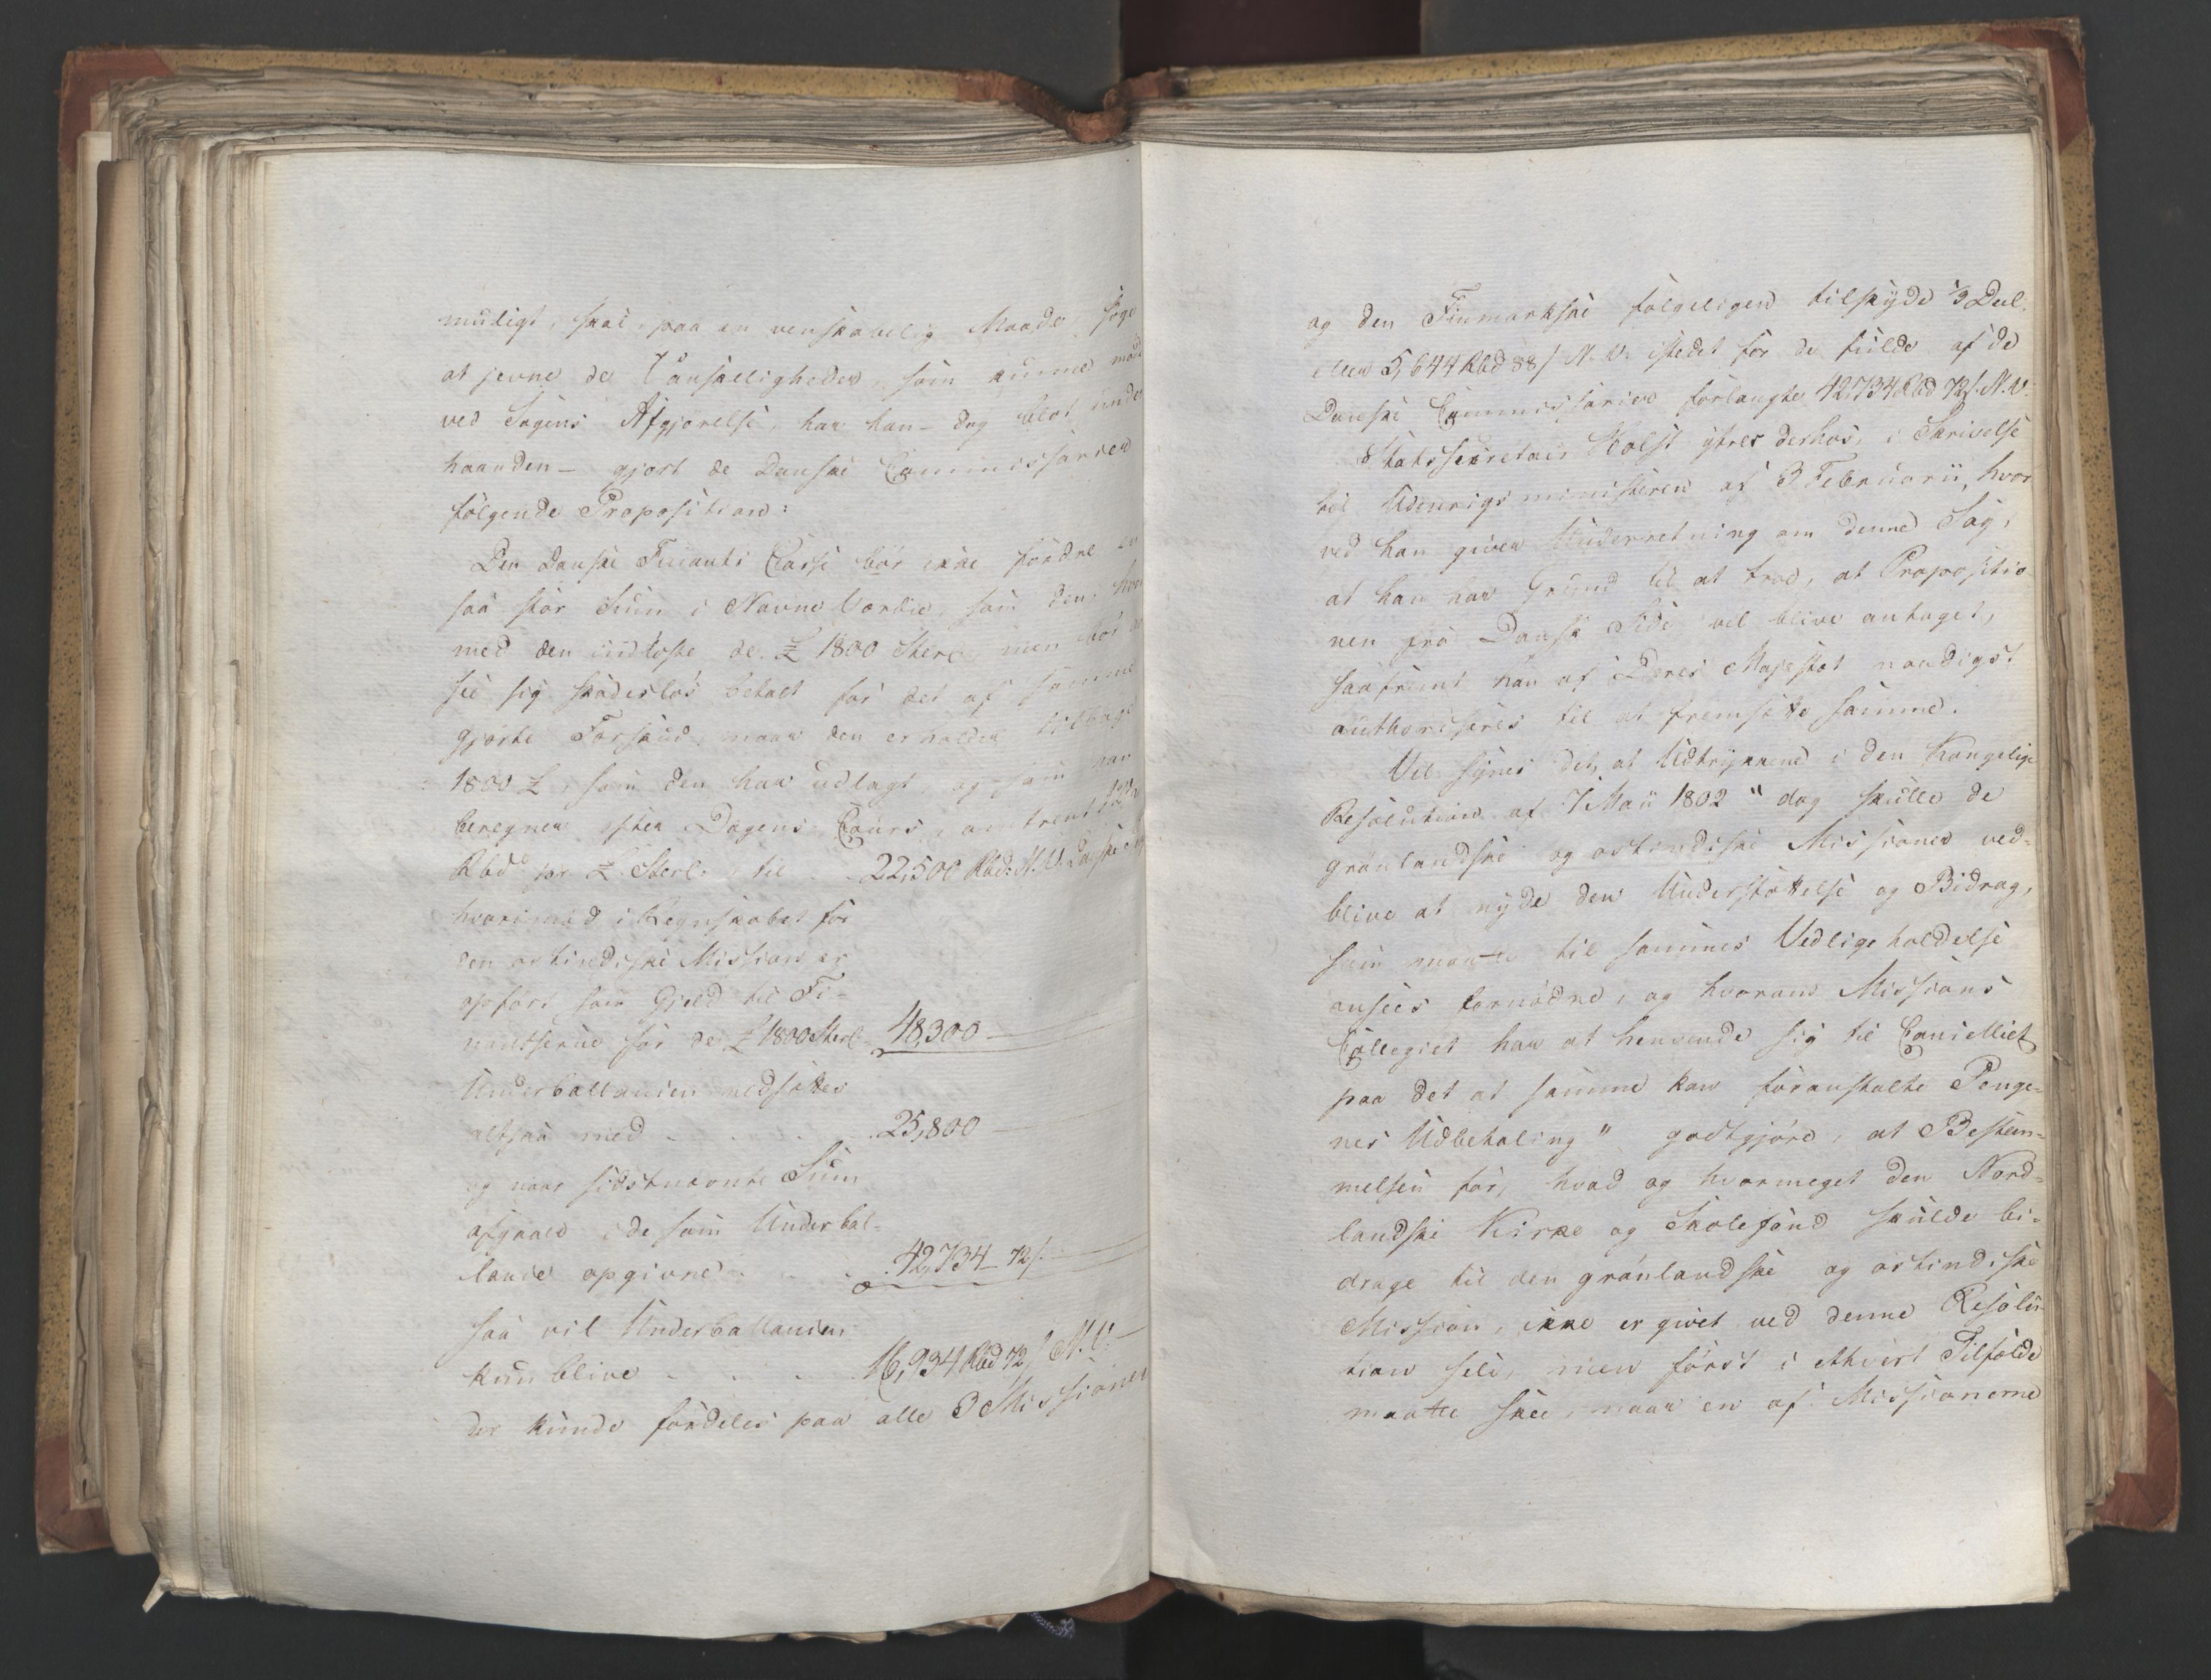 muligt, skal, paa en venskabelig Maade, søge
at jevne de Vanskeligheder, som kunne møde
ved Sagens Afgjørelse, har han – dog blot under
haanden – gjort de Danske Commissarier
følgende Proposition:
Den Danske Finants Casse bør ikke fordre en
saa stor Sum i Navne Værdie, som den, hvor
med den indløste de £ 1800 Sterl. men bør
see sig skadesløs betalt for det af samme
gjorte Forskud, naar den erholder tilbage
1800 £, som den har udlagt, og som kan
beregnes efter Dagens Cours, omtrent
Rbd pr £ Sterl., til . . 22,500 Rbd. N. V. Danske
hvorimod i Regnskabet for
den ostindiske Mission er
opført som Gjeld til Fi-
nantserne for de £ 1800 Sterl. 48,300 –
Underballancen nedsættes
altsaa med . . . . 25,800 –
og naar sidstnævnte Sum
afgaaer i de som Underbal-
lance opgivne . . . 42,734 – 72 s.
saa vil Underballancen
kun blive . . . 16,934 Rbd 72 s N. V. –
der kunde fordeles paa alle 3 Missioner
og den Finmarkske følgeligen tilskyde 1/3 Deel,
eller 5,644 Rbd 88 s N. V. istedet for de fulde af de
Danske Commissarier forlangte 42,734 Rbd 72 s. N. V.
Statssecretair Holst ytrer derhos, i Skrivelse
til Udenrigsministeren af 3 Februarii, hvor
ved han giver Underretning om denne Sag,
at han har Grund til at troe, at Propositio-
nen fra Dansk Side vil blive antaget,
saafremt han af Deres Majestæt naadigst
authoriseres til at fremsætte samme.
Vel synes det, at Udtrykkene i den Kongelige
Resolution af 7 Maii 1802 "dog skulle de
grønlandske og ostindiske Missioner ved-
blive at nyde den Understøttelse og Bidrag,
som maatte til sammes Vedligeholdelse
ansees fornødne, og hvorom Missions
Collegiet har at henvende sig til Cancelliet
paa det at samme kan foranstalte Penge-
nes Udbetaling" godtgjøre, at Bestem-
melsen for, hvad og hvormeget den Nord-
landske Kirke og Skolefond skulde bi-
drage til den grønlandske og ostindiske
Mission, ikke er givet ved denne Resolu-
tion selv, men først i ethvert Tilfælde
maatte skee, naar en af Missionerne